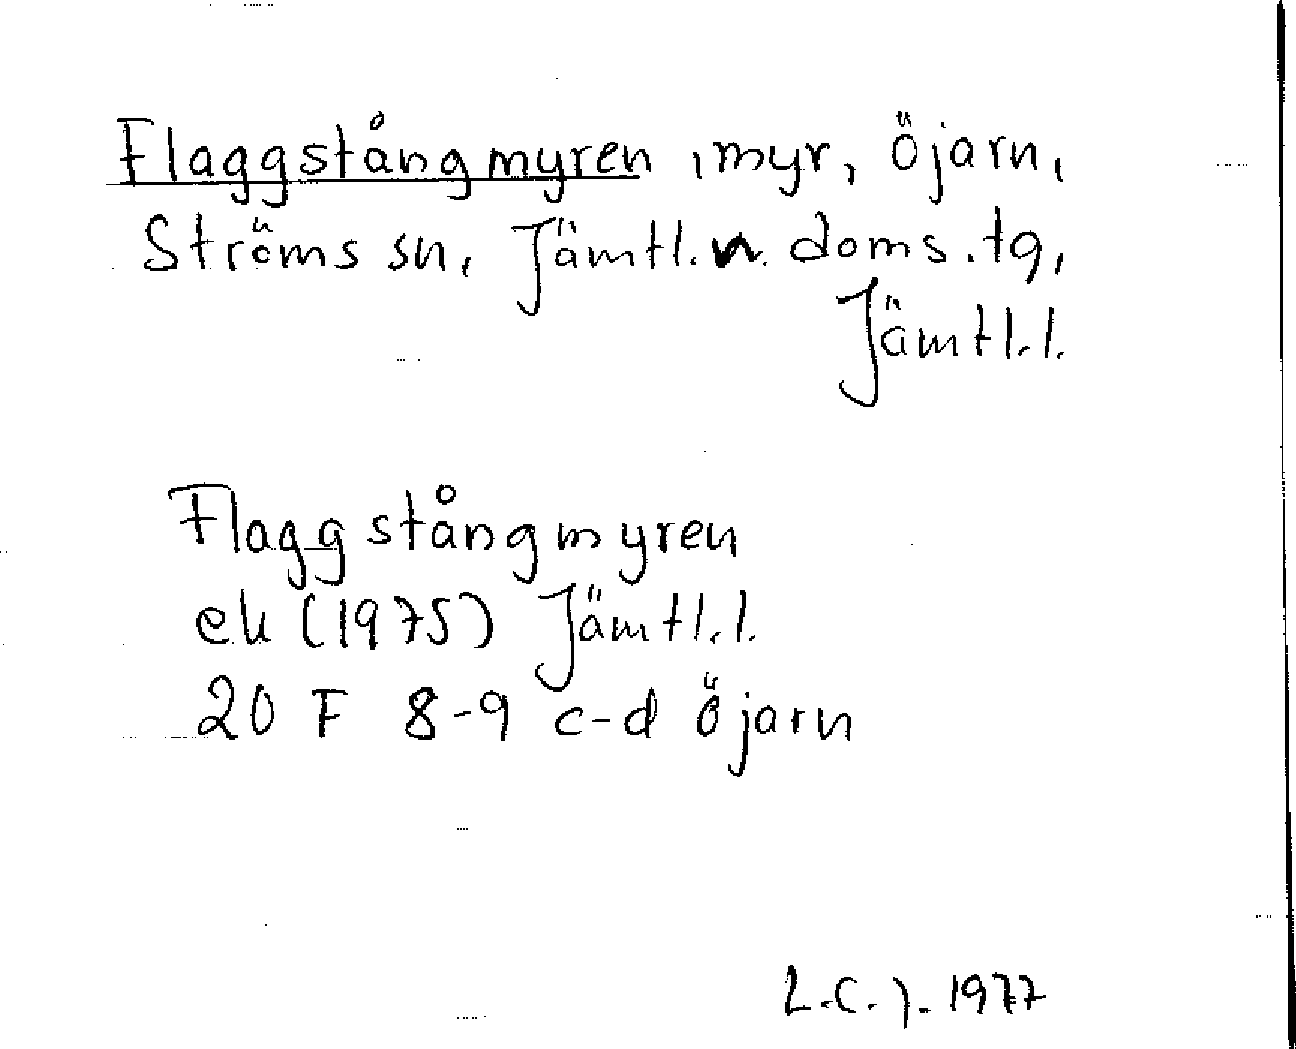 Flaggstångmyren, myr, Öjarn,
Ströms sn, Jämtl. n. doms. tg,
Jämtl. l.
Flaggstångmyren
ek (1975) Jämtl. l.
20 F 8-9 c-d Öjarn
L.C.J. 1977